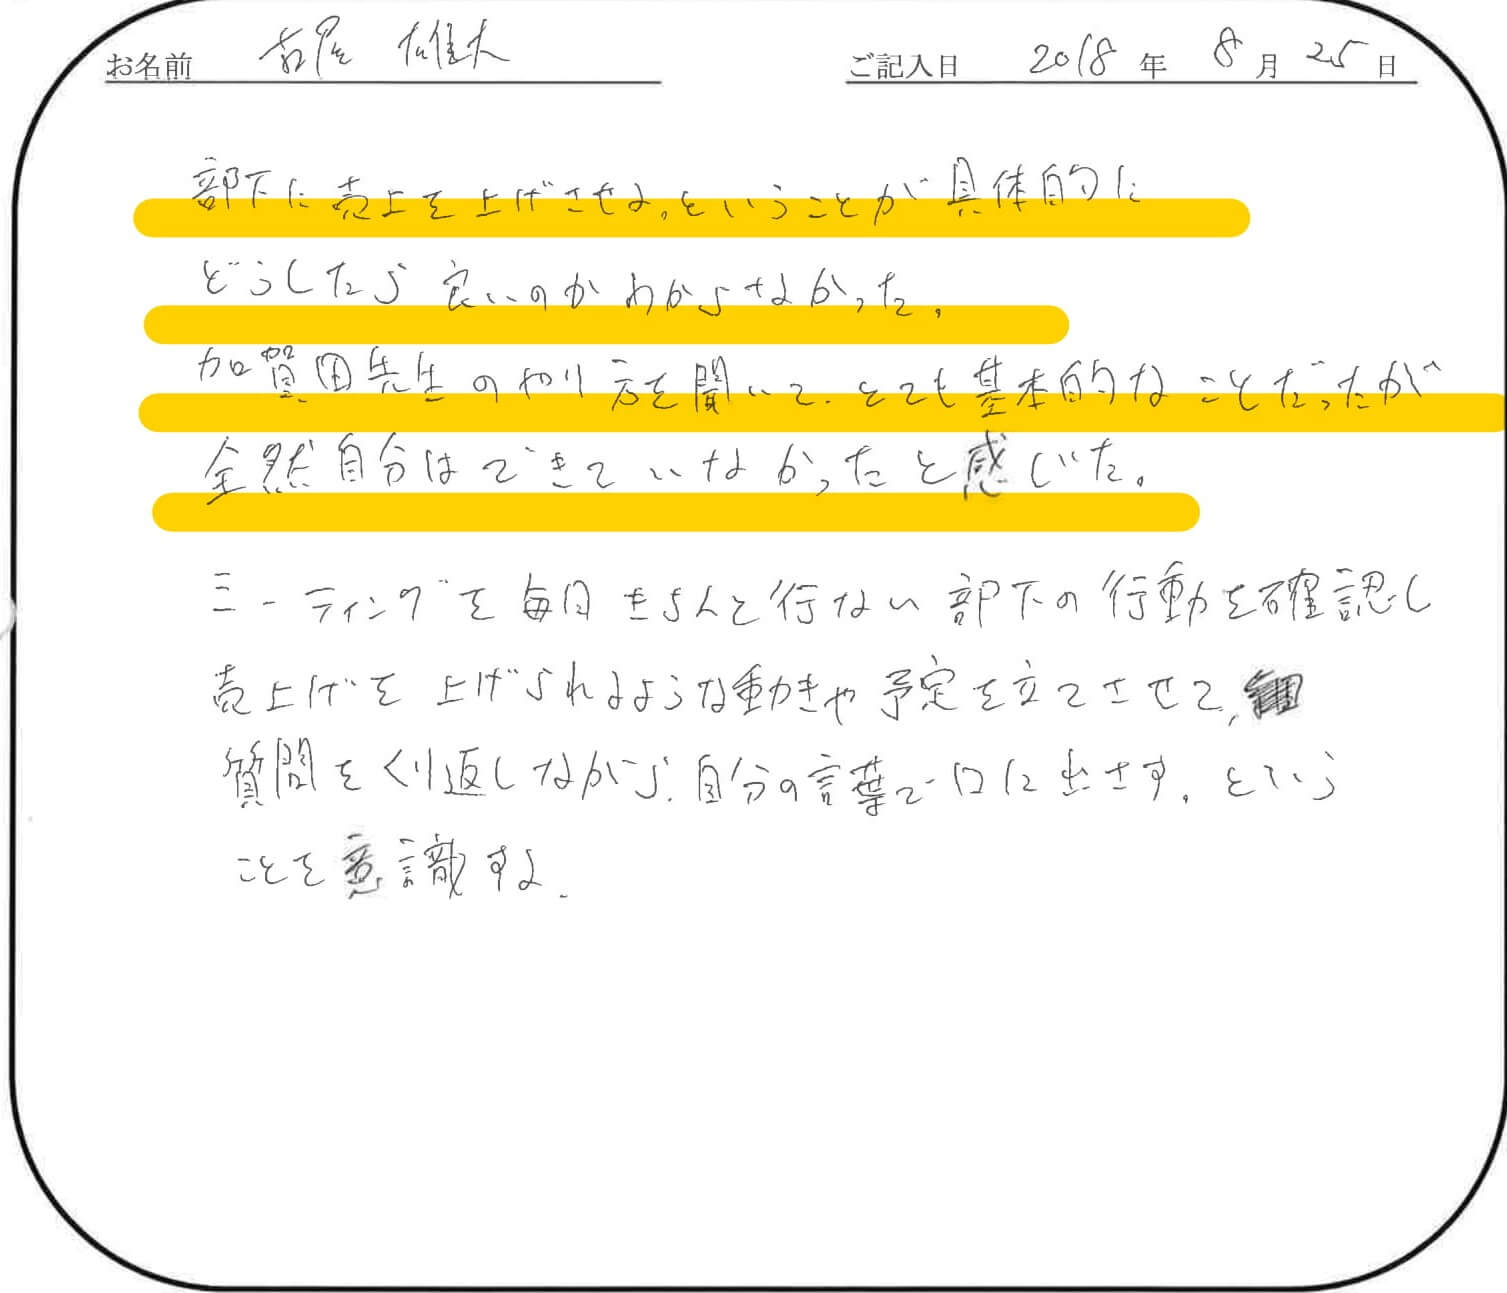 お名前 古屋 雄大 ご記入日 2018年 8月 25日
部下に売上を上げさせる。ということが具体的に
どうしたら良いのかわからなかった。
加賀田先生のやり方を聞いて、とても基本的なことだったが
全然自分はできていなかったと感じた。
ミーティングを毎日きちんと行ない部下の行動を確認し
売上げを上げられるような動きや予定を立てさせて、
質問をくり返しながら、自分の言葉で口に出さす。という
ことを意識する。